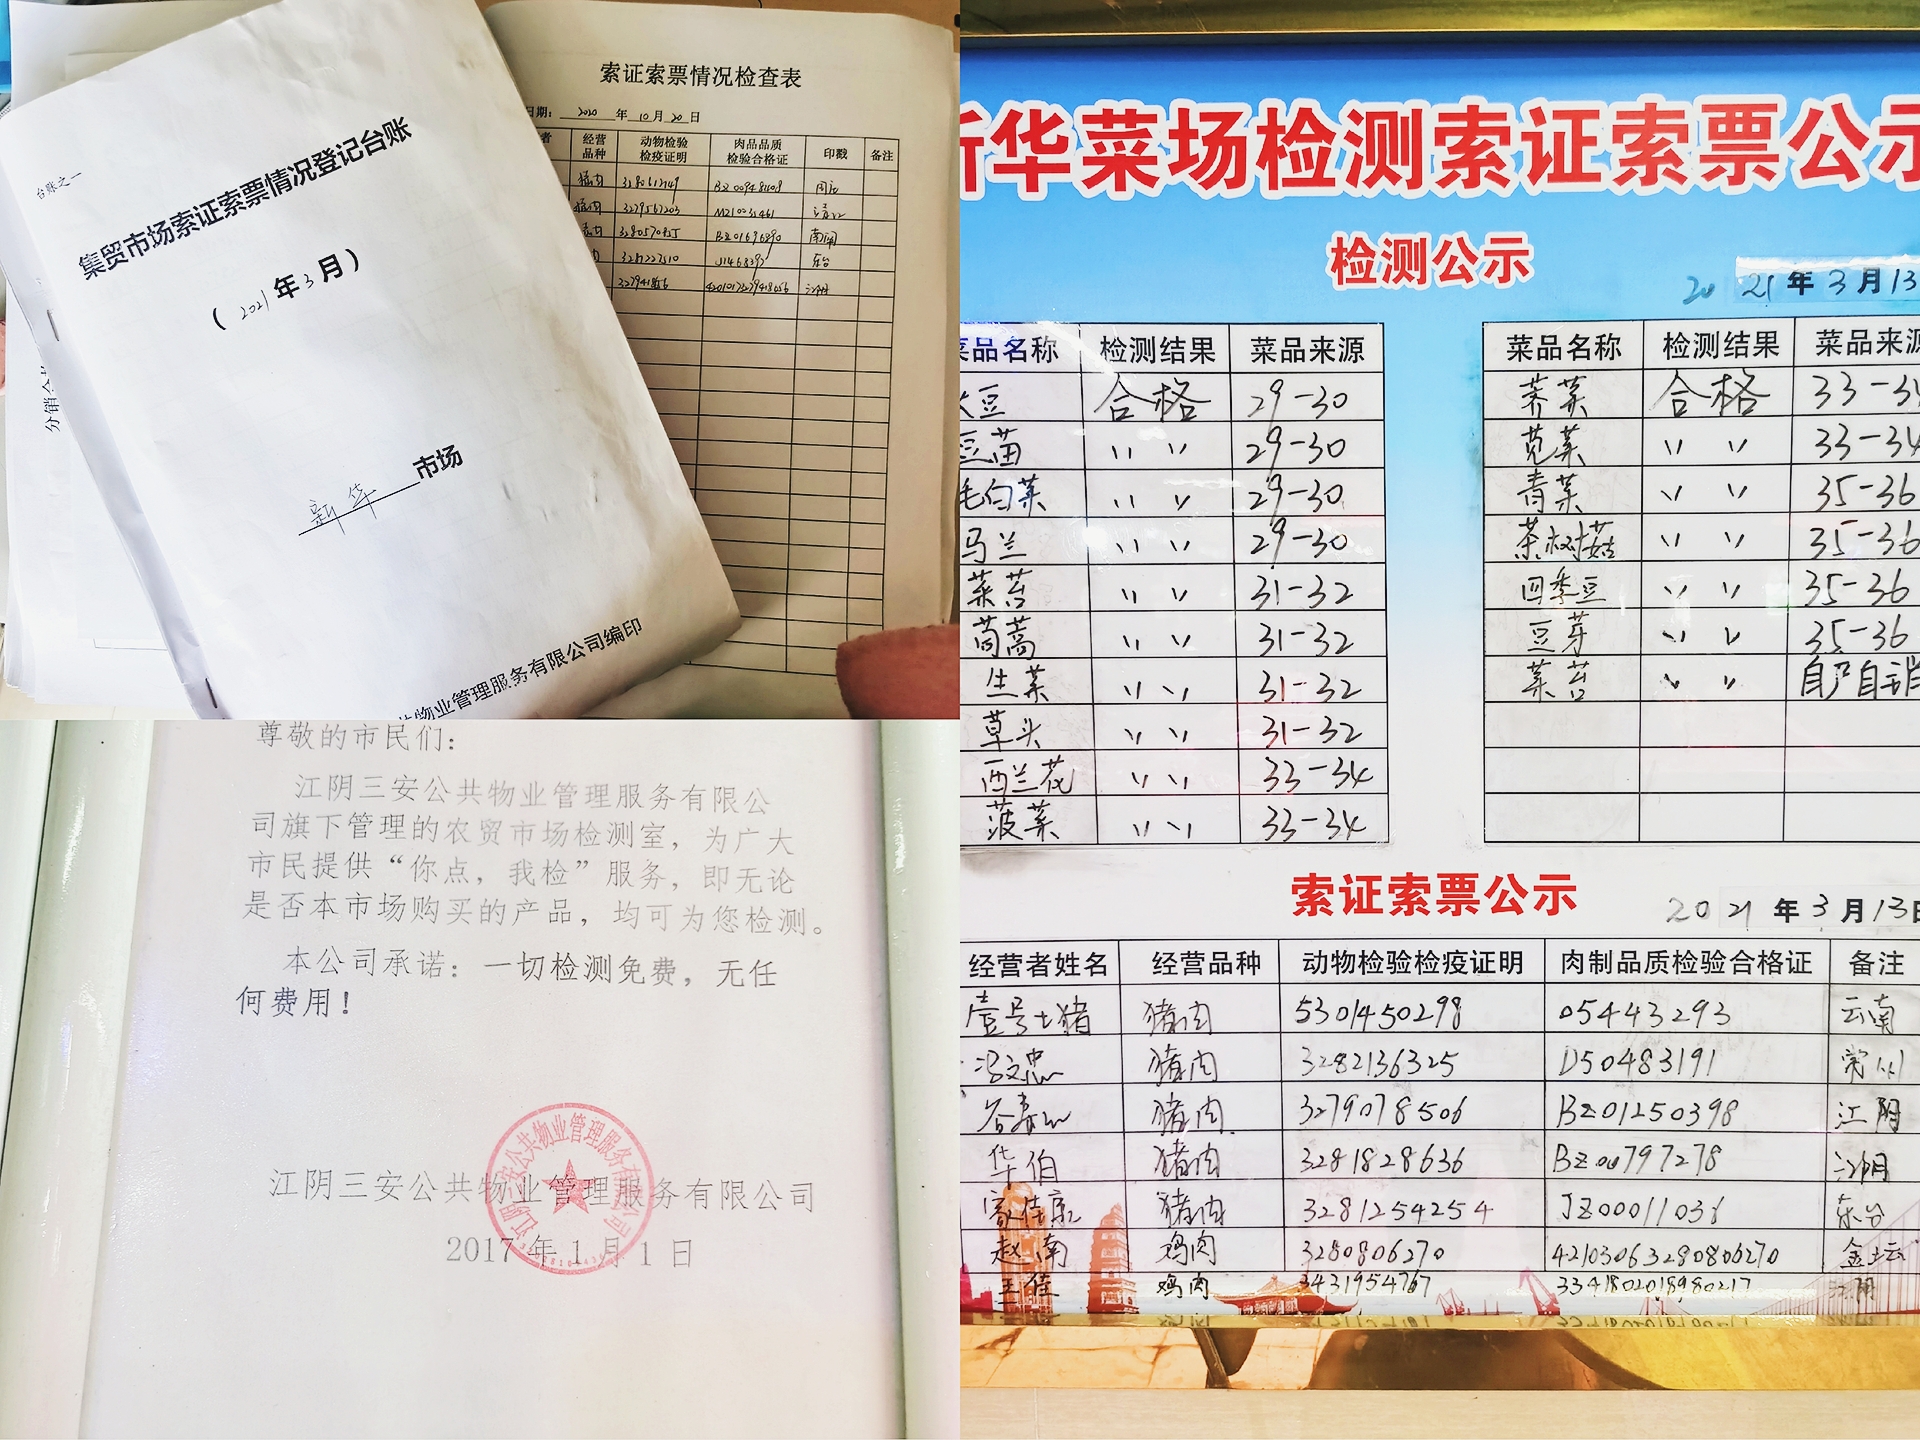 台账之一
集贸市场索证索票情况登记台账
( 2021 年 3 月 )
新华 市场
物业管理服务有限公司编印
索证索票情况检查表
日期: 2020 年 10 月 20 日
经营品种 动物检验检疫证明 肉品品质检验合格证 印戳 备注
猪肉
猪肉 3279567203
南闸
东台
尊敬的市民们:
江阴三安公共物业管理服务有限公
司旗下管理的农贸市场检测室,为广大
市民提供“你点,我检”服务,即无论
是否本市场购买的产品,均可为您检测。
本公司承诺:一切检测免费,无任
何费用!
江阴三安公共物业管理服务有限公司
2017 年 1 月 1 日
江阴三安公共物业管理服务有限公司
新华菜场检测索证索票公示
检测公示
2021 年 3 月 13
菜品名称 检测结果 菜品来源
豆 合格 29-30
豆苗 〃 〃 29-30
毛白菜 〃 〃 29-30
马兰 〃 〃 29-30
菜苔 〃 〃 31-32
茼蒿 〃 〃 31-32
生菜 〃 〃 31-32
草头 〃 〃 31-32
西兰花 〃 〃 33-34
菠菜 〃 〃 33-34
菜品名称 检测结果 菜品来源
荠菜 合格 33-34
苋菜 〃 〃 33-34
青菜 〃 〃 35-36
茶树菇 〃 〃 35-36
四季豆 〃 〃 35-36
豆芽 〃 〃 35-36
菜苔 〃 〃 自产自销
索证索票公示
2021 年 3 月 13日
经营者姓名 经营品种 动物检验检疫证明 肉制品质检验合格证 备注
壹号土猪 猪肉 5301450298 05443293 云南
冯文忠 猪肉 3282136325 D50483191 常州
猪肉 3279078506 BZ01250398 江阴
华伯 猪肉 3281828636 BZ00797278 江阴
家佳康 猪肉 3281254254 JZ00011036 东台
赵南 鸡肉 3280806270 42103063280806270 金坛
王佳 鸡肉 3431954767 3341802018980217 江阴